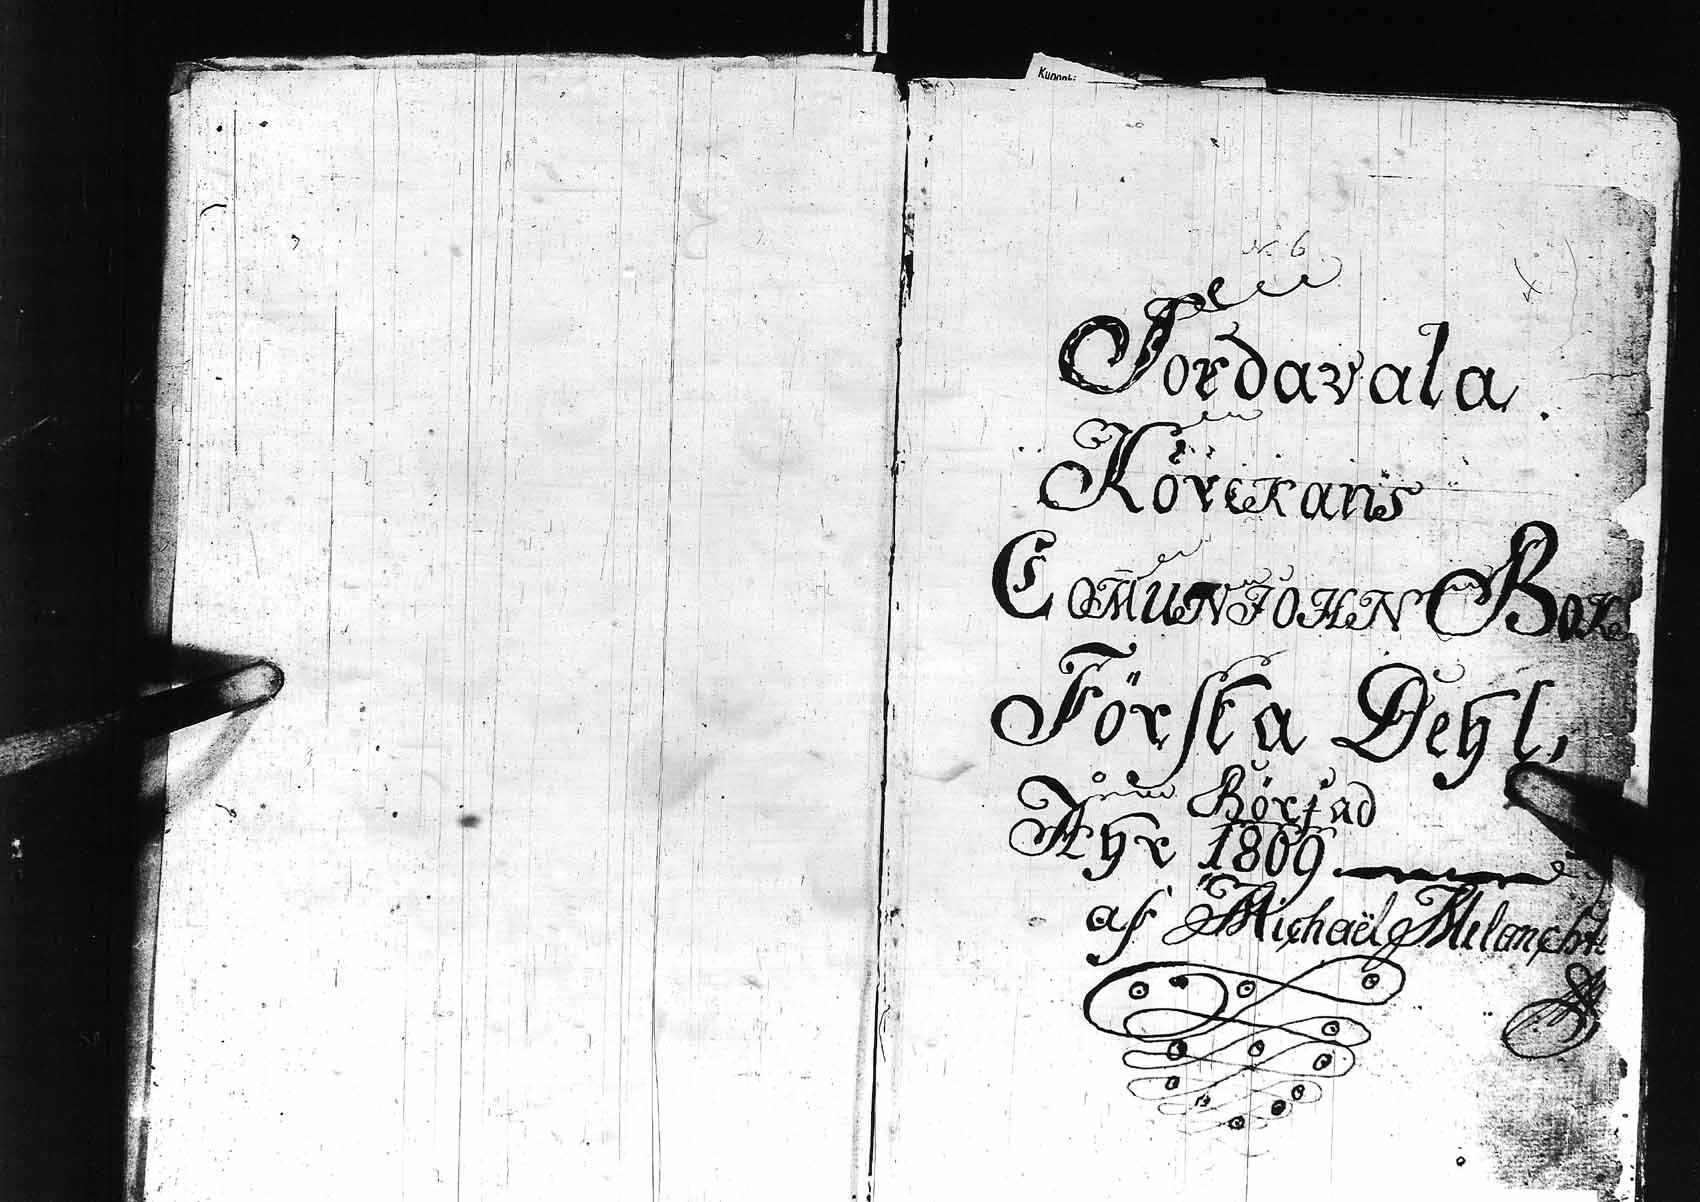 N. 6
Sordavala
Körckans
Comunjohn Bok
Förska Dehl,
Börjad
Ahr 1809
af Michaël Melancht: